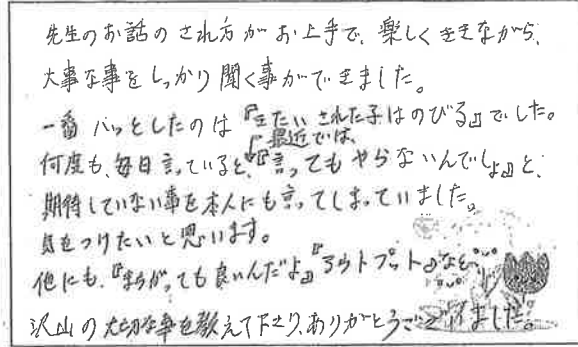 先生のお話のされ方がお上手で、楽しくききながら、
大事な事をしっかり聞く事ができました。
一番 ハッとしたのは『きたいされた子はのびる』でした。
最近では、
何度も、毎日言っていると、『言ってもやらないんでしょ』と、
期待していない事を本人にも言ってしまっていました。
気をつけたいと思います。
他にも、『まちがっても良いんだよ』『アウトプット』など
沢山の大切な事を教えて下さり、ありがとうございました。